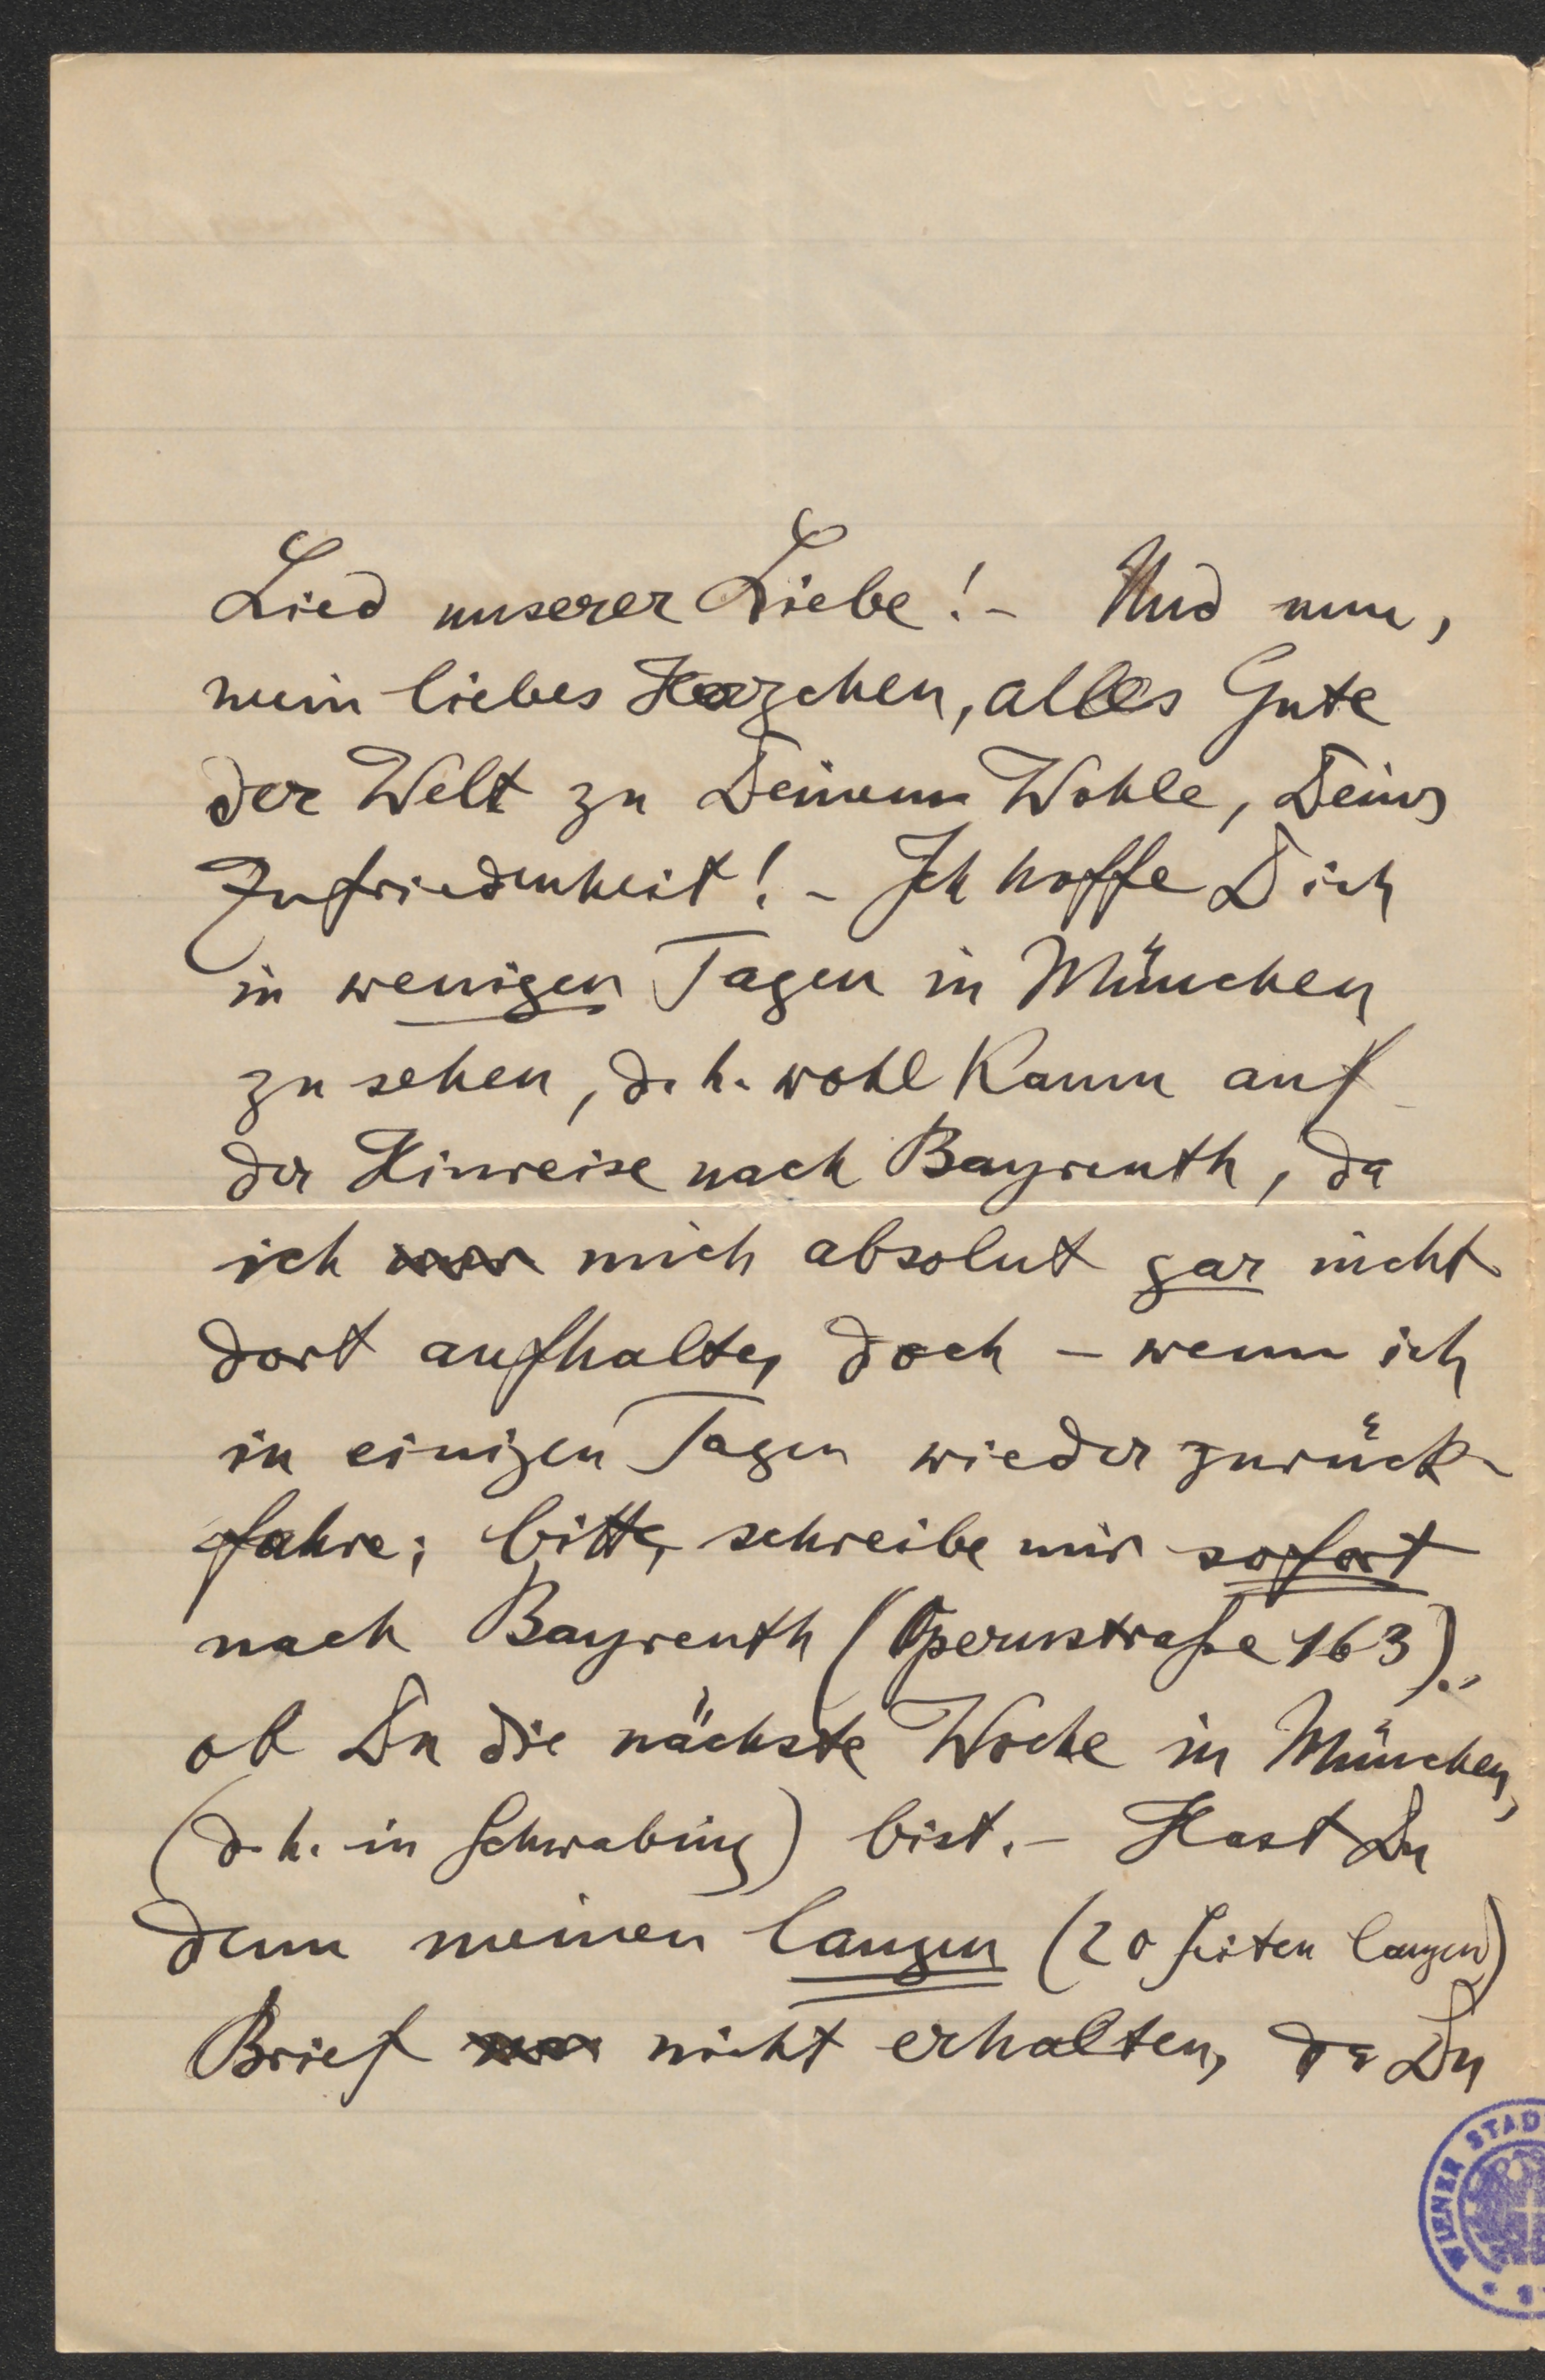 Lied unserer Liebe! - Und nun,
mein liebes Herzchen, alles Gute
der Welt zu Deinem Wohle, Deiner
Zufriedenheit! - Ich hoffe Dich
in wenigen Tagen in München
zu sehen, d. h. wohl kaum auf
der Hinreise nach Bayreuth, da
ich mich absolut gar nicht
dort aufhalte, doch - wenn ich
in einigen Tagen wieder zurück-
fahre; bitte, schreibe mir sofort
nach Bayreuth (Opernstraße 163).,
ob Du die nächste Woche in München,
(d. h. in Schwabing) bist. - Hast Du
denn meinen langen (20 Seiten langen)
Brief nicht erhalten, da Du
WIENER STAD